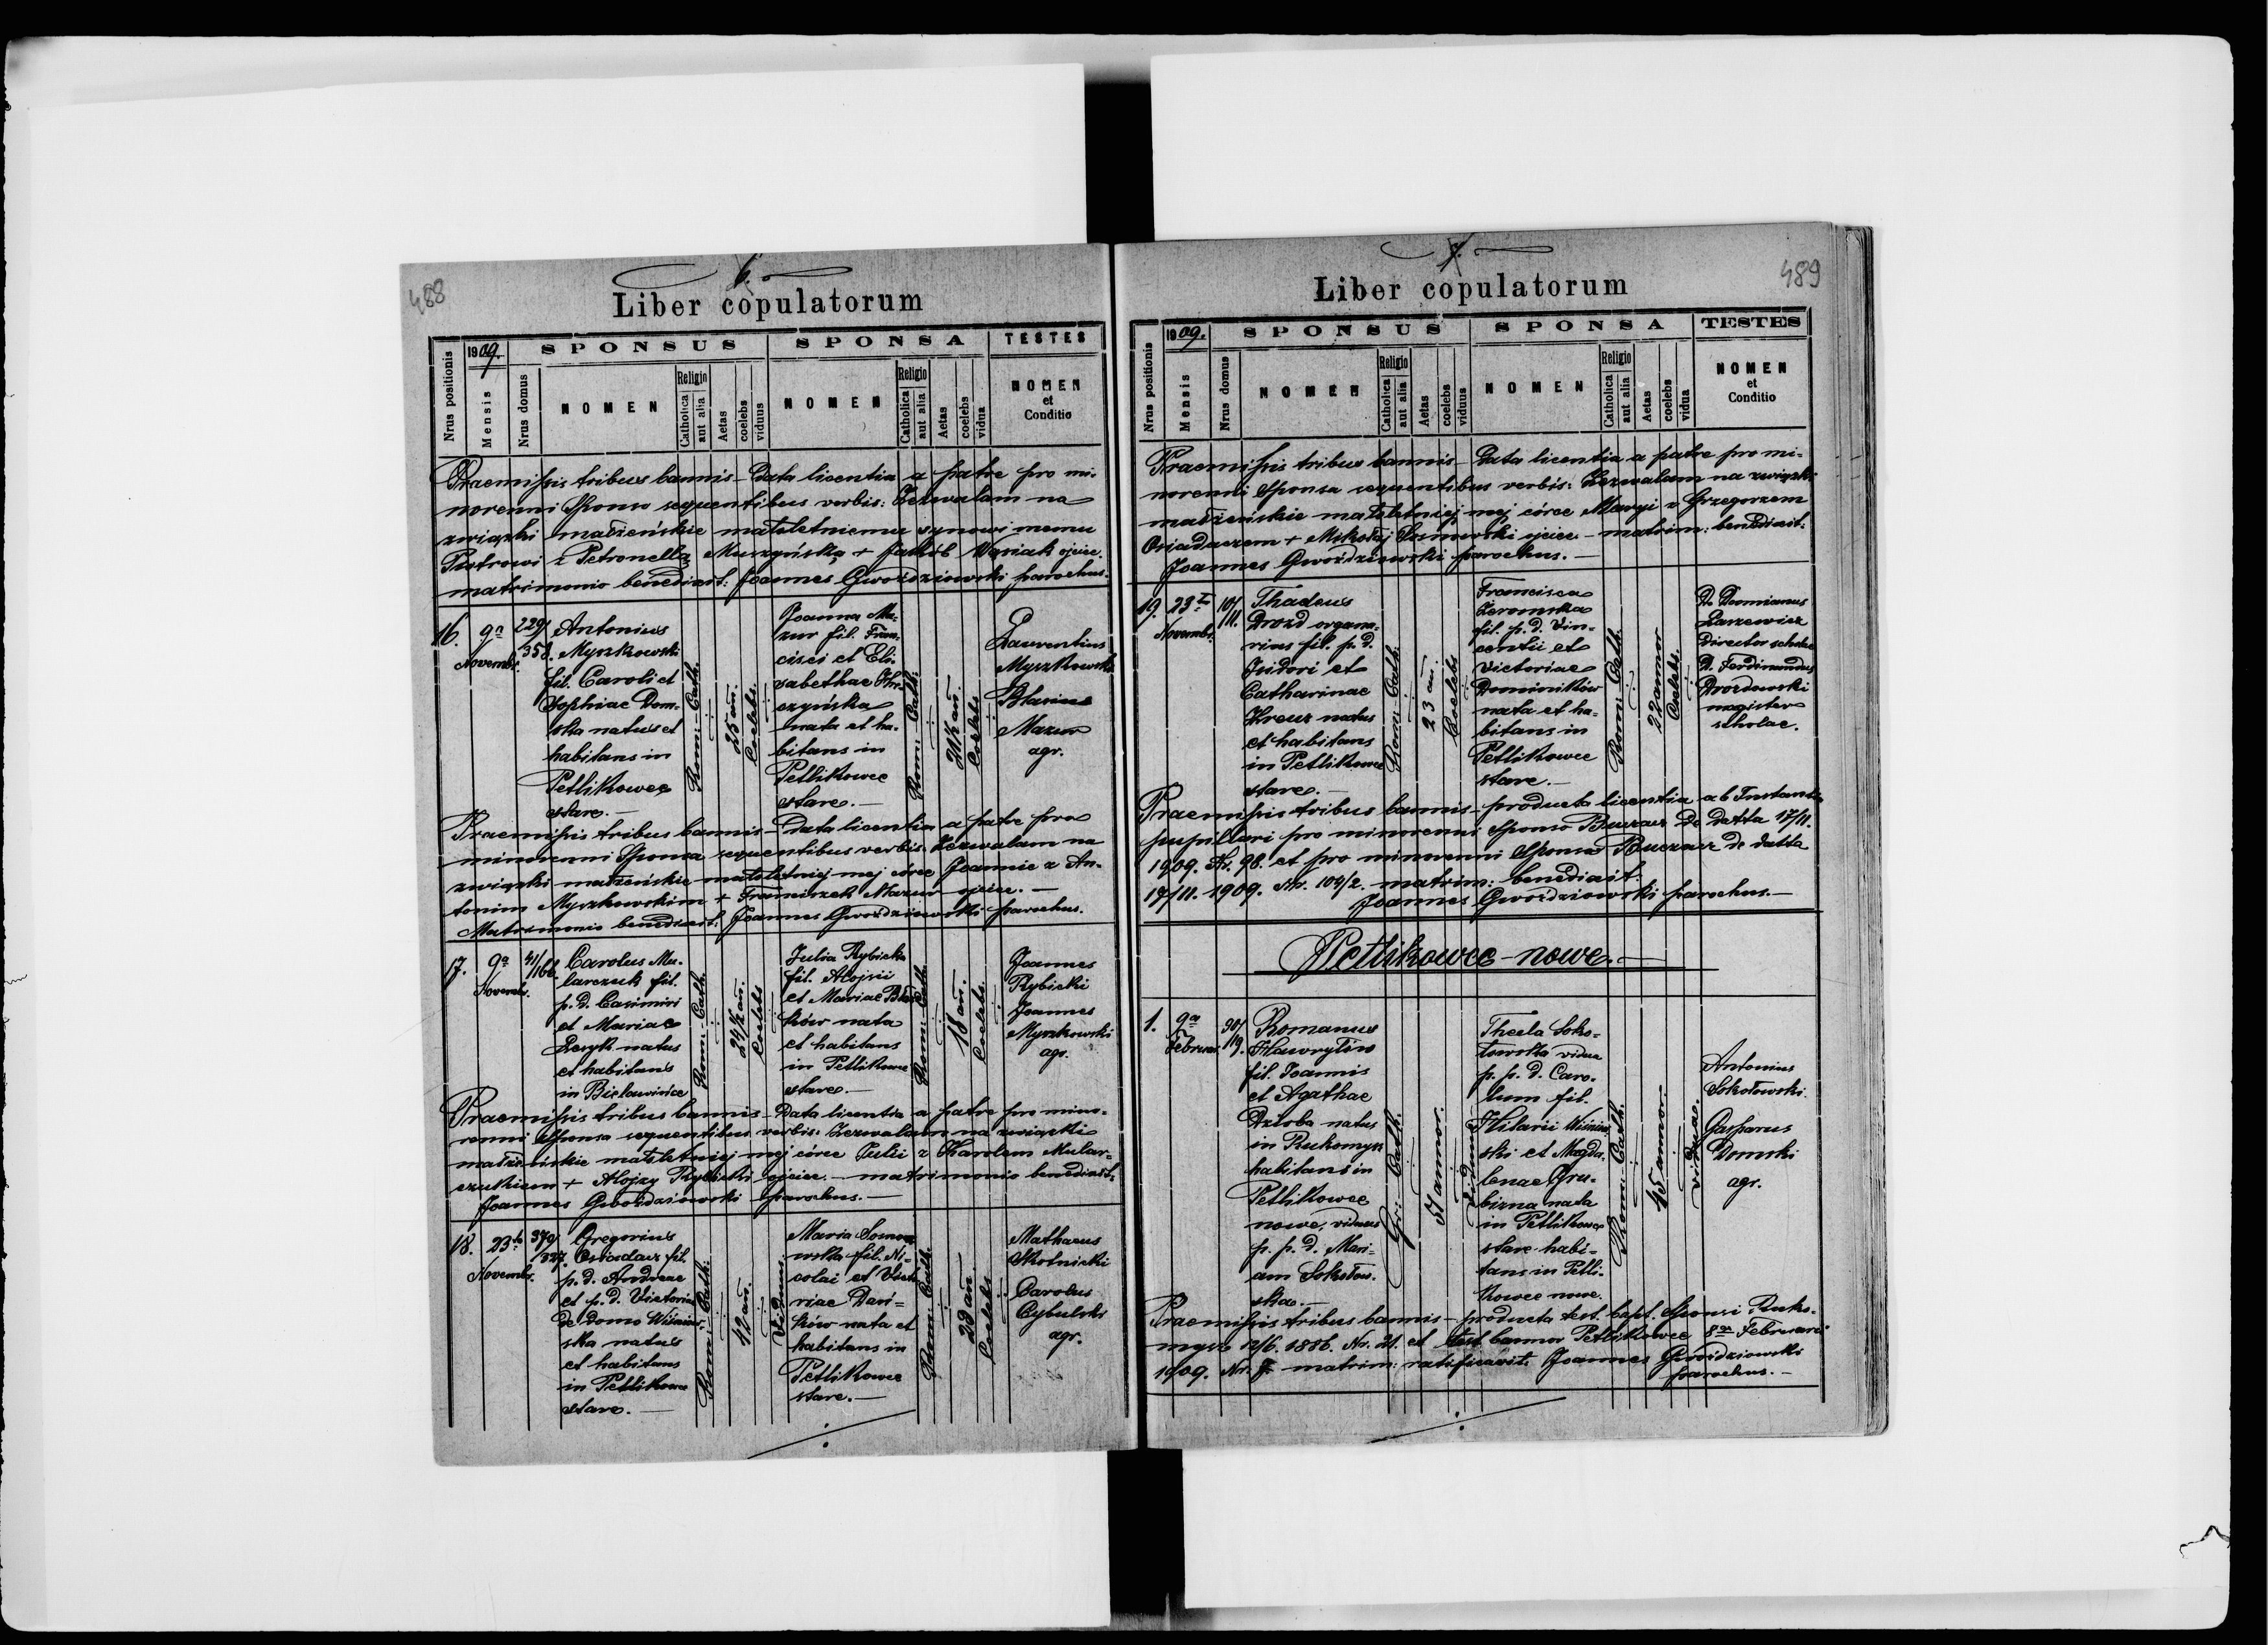 488
6.
Liber copulatorum
Nrus positionis
1909.
Mensis
SPONSUS
SPONSA
TESTES
Nrus domus
NOMEN
Religio
Catholica
aut alia
Aetas
coelebs
viduus
NOMEN
Religio
Catholica
aut alia
Aetas
coelebs
vidua
NOMEN
et
Conditio
Praemissis tribus bannis – Data licentia a patre pro mi-
norenni Sponso sequentibus verbis: Zezwalam na
związki małżeńskie małoletniemu synowi memu
Piotrowi z Petronellą Muszyńską + Jakób Wasiak ojciec.
matrimonio benedixit: Joannes Gwoździowski parochus.
16.
9a
Novembr.
229/
358.
Antonius
Myszkowski
fil. Caroli et
Sophiae Dom-
ska natus et
habitans in
Petlikowce
stare. –
Rom: Cath.
25 an.
Coelebs.
Joanna Ma-
zur fil. Fran-
cisci et Eli-
sabethae
nata et ha-
bitans in
Petlikowce
stare. –
Rom: Cath:
21½ an.
Coelebs
Laurentius
Myszkowski
Blasius
Mazur
agr.
Praemissis tribus bannis – Data licentia a patre pro
minorenni Sponsa sequentibus verbis: Zezwalam na
związki małżeńskie małoletniej mej córce Joannie z An-
tonim Myszkowskim + Franciszek Mazur ojciec. –
Matrimonio benedixit: Joannes Gwoździowski parochus.
17.
9a
Novembr.
41/
166.
Carolus Mu-
larczuk fil.
p. d. Casimiri
et Mariae
natus
et habitans
in Bielawińce
Rom: Cath.
24½ an.
Coelebs
Julia Rybicka
fil. Alojsii
et Mariae
ków nata
et habitans
in Petlikowce
stare. –
Rom: Cath.
18 an.
Coelebs.
Joannes
Rybicki
Joannes
Myszkowski
agr.
Praemissis tribus bannis – Data licentia a patre pro mino-
renni Sponsa sequentibus verbis: Zezwalam na związki
małżeńskie małoletniej mej córce Julii z Karolem Mular-
czukiem + Alojzy Rybicki ojciec. – matrimonio benedixit:
Joannes Gwoździowski parochus. –
18.
23
Novembr.
379/
327.
Gregorius
Osiadacz fil.
p. d. Andreae
et p. d. Victoriae
de domo Wiśniow-
ska natus
et habitans
in Petlikowce
stare. –
Rom: Cath:
42 an.
Viduus.
Maria Sosno-
wska fil. Ni-
colai et Victo-
riae Dań-
ków nata et
habitans in
Petlikowce
stare. –
Rom: Cath.
23 an.
Coelebs
Mathaeus
Skotnicki
Carolus
Cybulski
agr.
489
7.
Liber copulatorum
Nrus positionis
1909.
Mensis
SPONSUS
SPONSA
TESTES
Nrus domus
NOMEN
Religio
Catholica
aut alia
Aetas
coelebs
viduus
NOMEN
Religio
Catholica
aut alia
Aetas
coelebs
vidua
NOMEN
et
Conditio
Praemissis tribus bannis – Data licentia a patre pro mi-
norenni Sponsa sequentibus verbis: Zezwalam na związki
małżeńskie małoletniej mej córce Maryi z Grzegorzem
Osiadaczem + Mikołaj Sosnowski ojciec – matrim: benedixit:
Joannes Gwoździowski parochus. –
19.
23
Novembr.
10/
11.
Thadeus
Drozd organa-
rius fil. p. d.
Isidori et
Catharinae
Kreuz natus
et habitans
in Petlikowce
stare. –
Rom: Cath.
23 an.
Coelebs
Francisca
Żeromska
fil. p. d. Vin-
centii et
Victoriae
Dominików
nata et ha-
bitans in
Petlikowce
stare. –
Rom: Cath.
22 annor
Coelebs.
D. Damianus
Łazewicz
Director scholae
D. Ferdinandus
Drozdowski
magister
scholae.
Praemissis tribus bannis – producta licentia ab Instantia
pupillari pro minorenni Sponso Buczacz de datta 17/11.
1909. Nr. 98. et pro minorenni Sponsa Buczacz de datta
17/11. 1909. Nr. 104/2. matrim: benedixit:
Joannes Gwoździowski parochus. –
Petlikowce nowe. –
1.
9a
Februar.
90/
119.
Romanus
Hawryłów
fil. Joannis
et Agathae
Dzioba natus
in Rukomysz
habitans in
Petlikowce
nowe, viduus
p. p. d. Mari-
am Sokołow-
ska. –
Gr: Cath.
51 annor.
Viduus
Thecla Soko-
łowska vidua
p. p. d. Caro-
lum fil.
Hilarii Wiśniow-
ski et Magda-
lenae Gru-
bizna nata
in Petlikowce
stare habi-
tans in Petli-
kowce nowe.
Rom: Cath.
45 annor.
vidua.
Antonius
Sokołowski.
Gasparus
Domski
agr.
Praemissis tribus bannis – producta test. bapt. Sponsi Ruko-
mysz 12/6. 1886. Nr. 21. et test bannor Petlikowce 8va Februarii
1909. Nr. 7. matrim: ratificavit: Joannes Gwoździowski
parochus. –